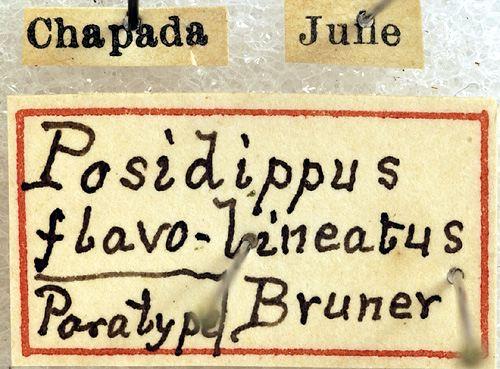 Chapada
June
Posidippus
flavo-lineatus
Paratype Bruner